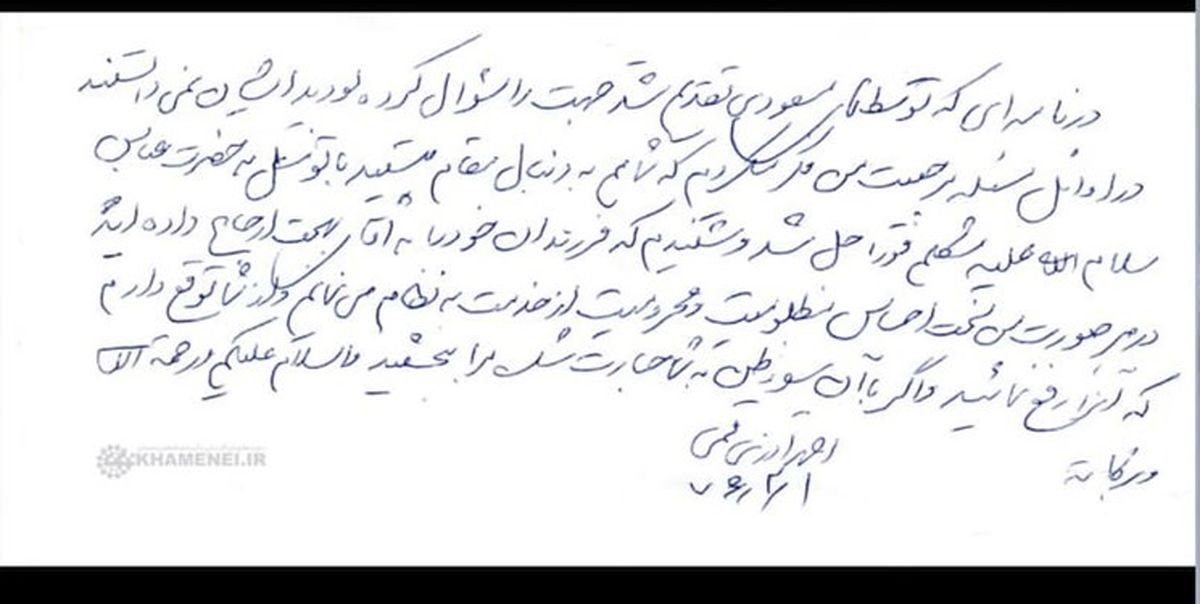 در نامه ای که توسط آقای مسعودی تقدیم شد جهت را سؤال کرده بودید ایشان نمی دانستند
در اوائل مسئله مرجعیت من فکر می کردم که شما هم به دنبال مقام هستید با توسل به حضرت عباس
سلام الله علیه مشکلم فوراً حل شد و شنیدم که فرزندان خود را به آقای بهجت ارجاع داده اید
در هر صورت من تحت احساس مظلومیت و محرومیت از خدمت به نظام می نمایم و از شما توقع دارم
که آنرا رفع نمائید و اگر با آن سوء ظن به شما جسارت شد مرا ببخشید والسلام علیکم و رحمة الله
و برکاته
آذری قمی
۷۶/۳/۱
KHAMENEI.IR